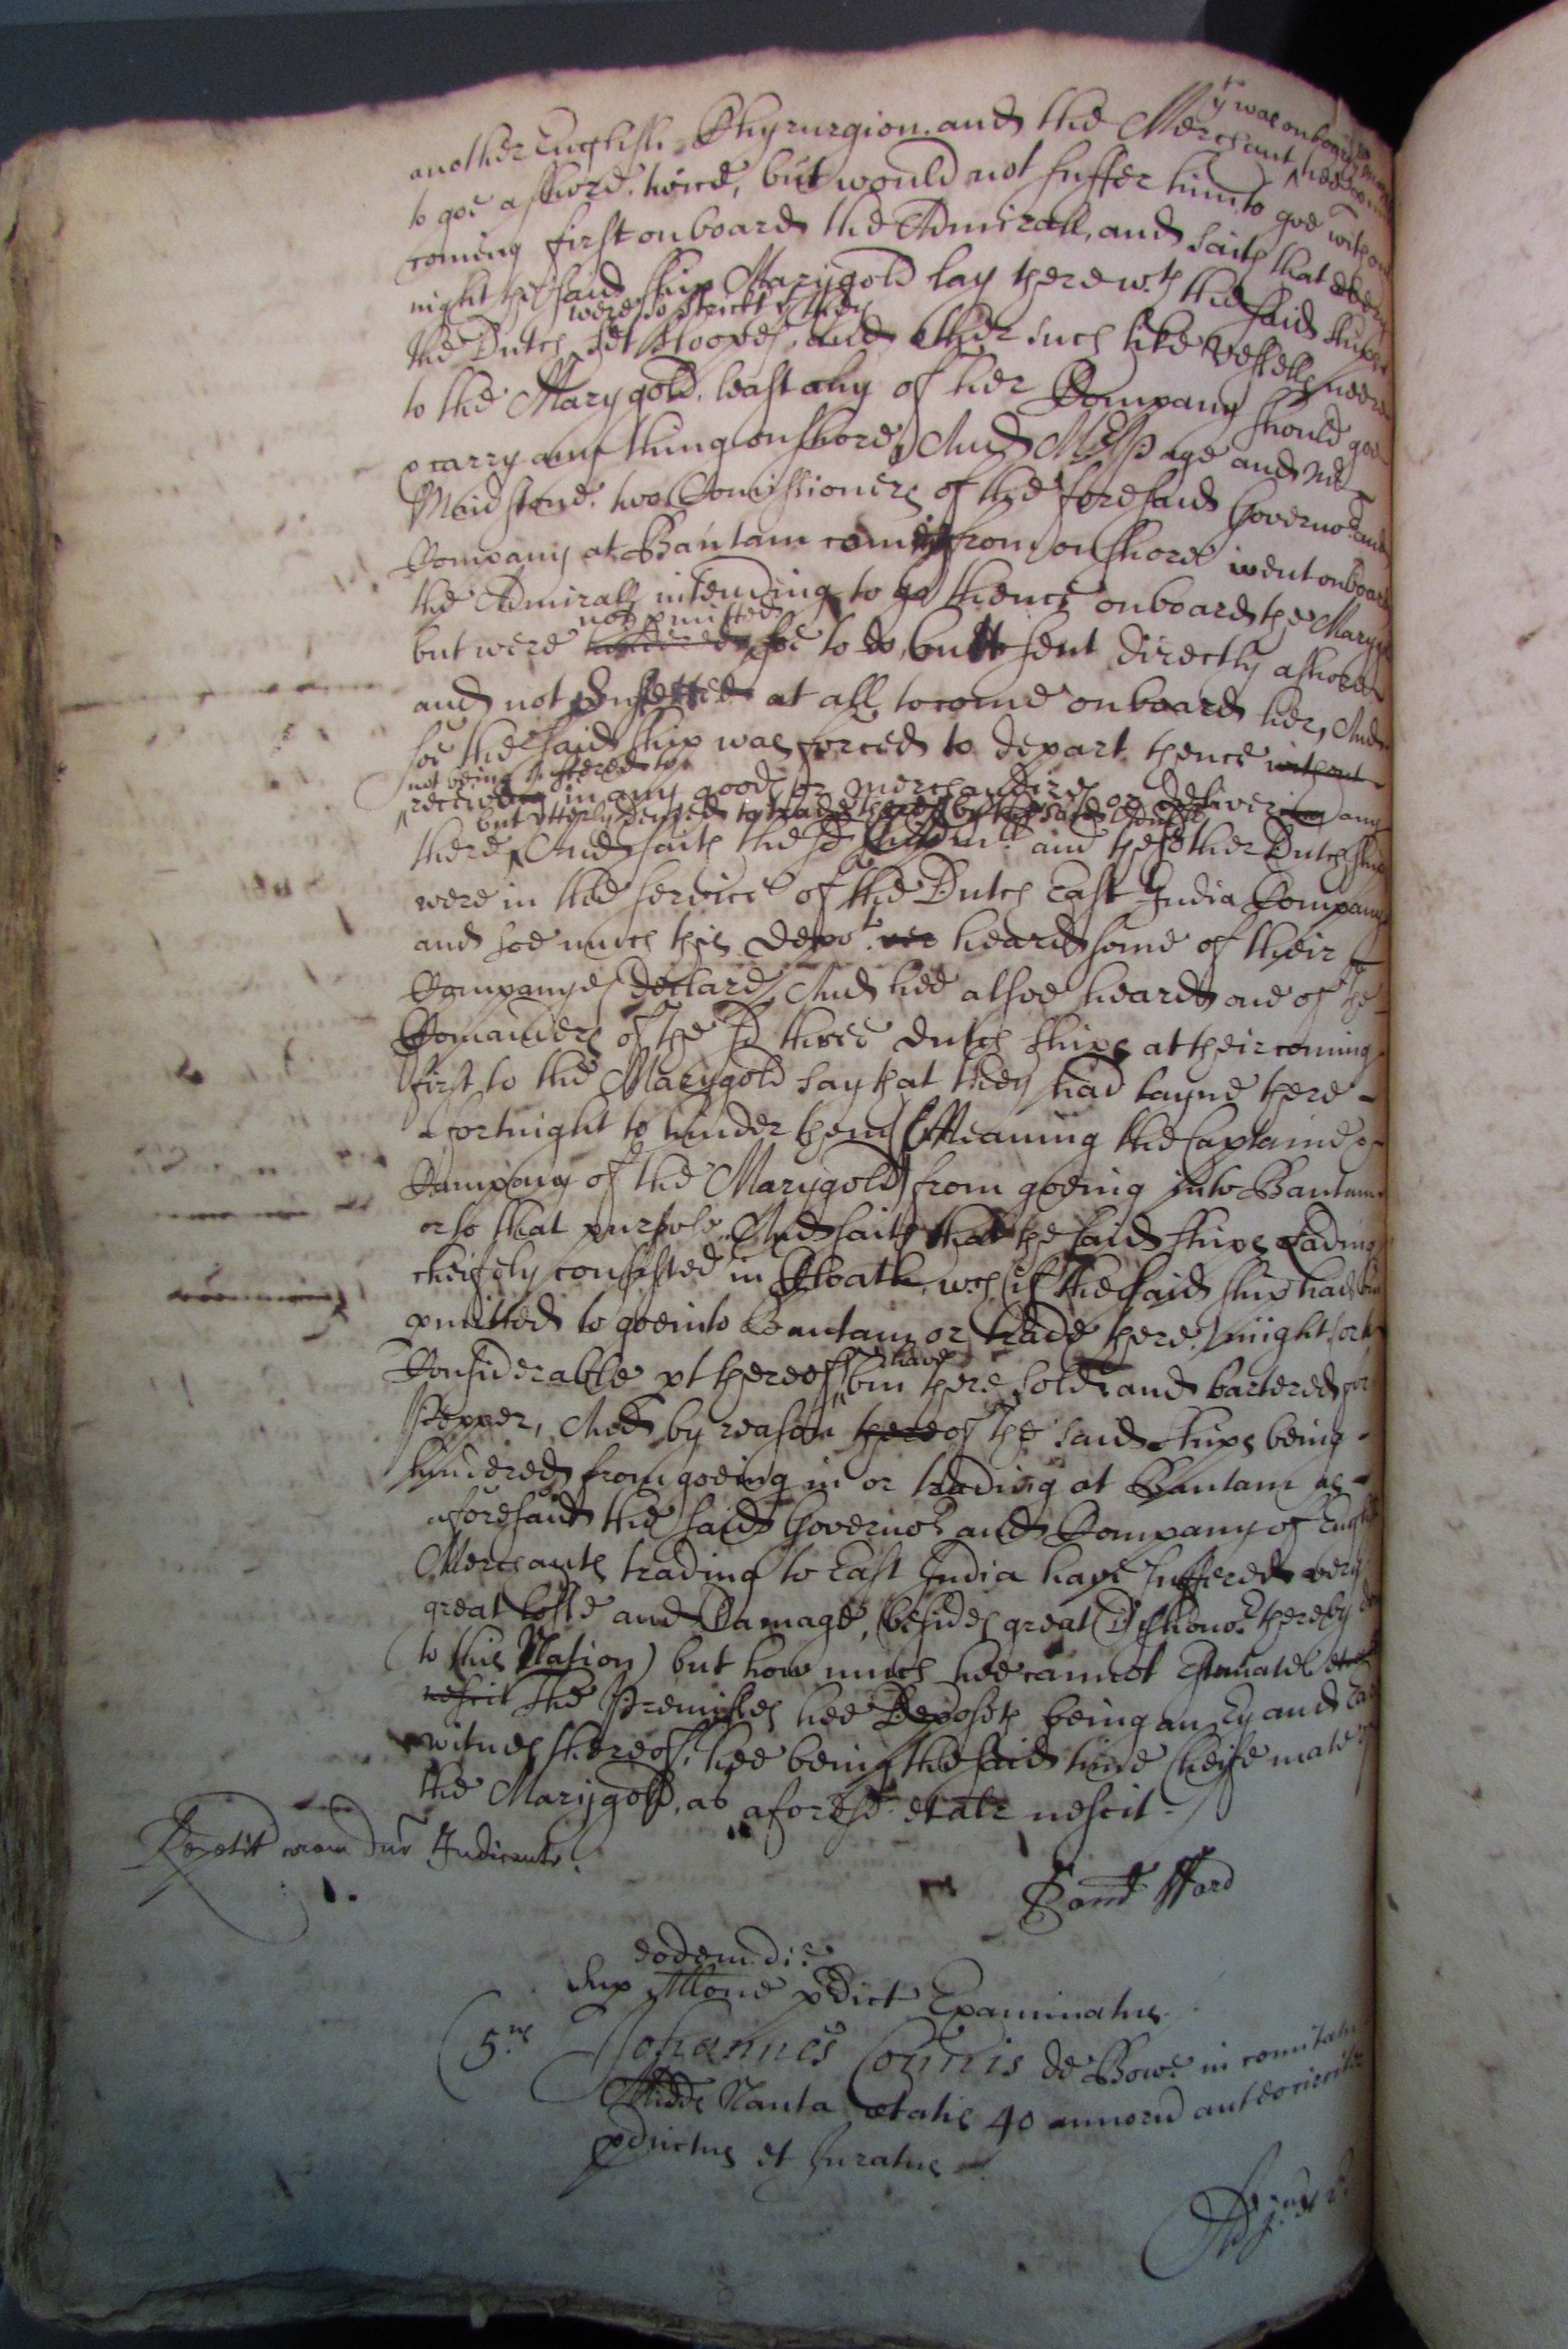 y^t was on board
another English Chyrurgion and the Merchant hee
to goe ashore twice, but would not suffer him to goe without
coming first on board the Admirall, and saith that every
night the said ship Marygold lay there w^th the said shipps
were so strickt y^t they
the Dutch set sloopes and other such like Vessells neere
to the Mary gold least any of her Company should goe
or carry any thing on shore, And M^r Page and M^r
Maidstone two Comissioners of the foresaid Governo^r and
Company at Bantam coming from on shore went onboard
the Admirall intending to go thence onboard the Marygold
not p^rmitted
but were hindered soe to do, but sent directly ashore
and not suffered at all to come onboard her, And
soe the said ship was forced to depart thence without
not being suffered to
receive in any goods or merchandizes or deliver any
but utterly denied to trade there by the said
there, And saith the s^d Admirall and the other Dutch ships
were in the service of the Dutch East India Company
and soe much this depo^t heard some of their
Companyes declare, And hee alsoe heard one of the
Comanders of the s^d three Dutch ships at their coming
first to the Marygold say that they had layne there
a fortnight to hinder them (Meaning the Captaine &
Company of the Marygold) from goeing into Bantam
or to that purpose. And saith that the said ships Lading
cheifely consisted in Cloath, w^ch (if the said ship had bin
p^rmitted to goe into Bantam or trade there) might or a
have
Considerable p^t thereof bin there sold and bartered for
Pepper, And by reason there of the said ships being
hindered from goeing in or trading at Bantam as
aforesaid the said Governo^r and Company of English
Merchants trading to East India have suffered very
great losse and Damage, (besides great Dishono^r thereby
to this Nation) but how much hee cannot Estimate et
nescit The Premisses hee Deposeth being an Ey and Ear
witnes thereof, hee being the said time cheife mate of
the Marygold, as afores^d et al^r nescit
Repetit coram duo^r Judicante.
Sam^ll Ford
eodem die
Sup Allone p^rdict Examinatus
5^us Johannes Connis de Bowe in comitatu
Midds Nauta ætatis 40 annoru aut eo circiter
p^rductus et Juratus